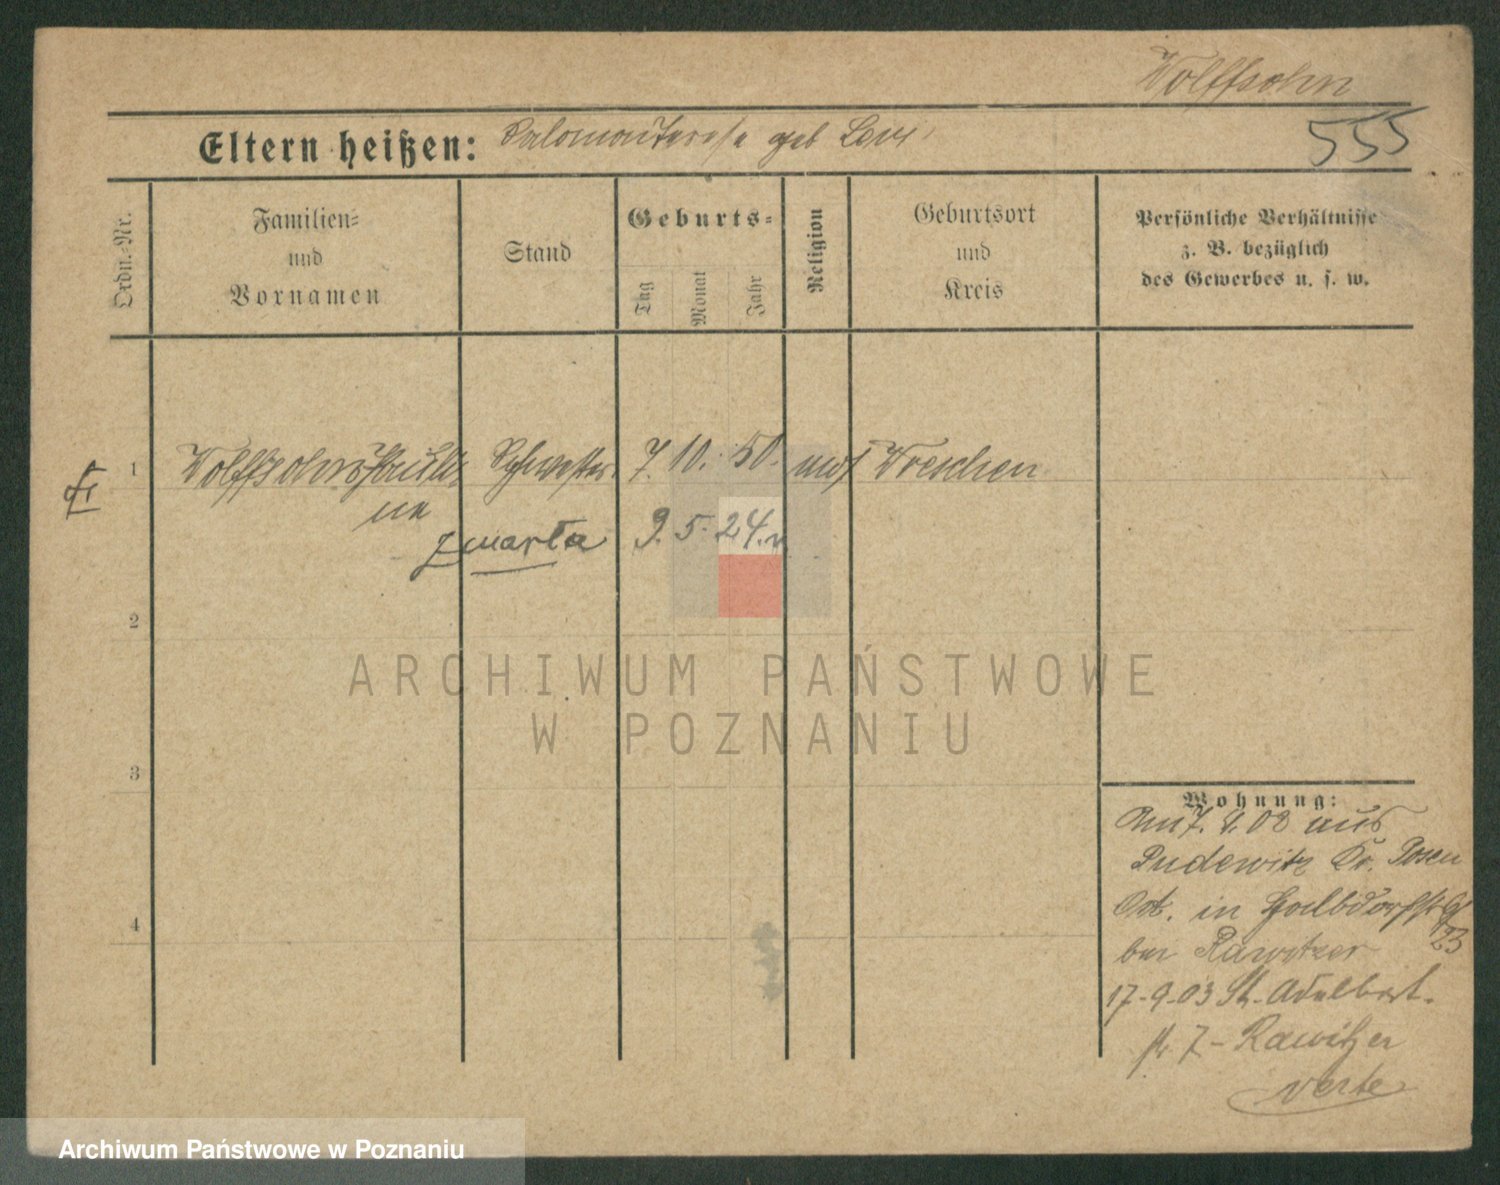 Wolffsohn
Eltern heißen: Salomon Terese geb Levi
555
Ordn.-Nr.
Familien-
und
Vornamen
Stand
Geburts-
Tag
Monat
Jahr
Religion
Geburtsort
und
Kreis
Persönliche Verhältnisse
z. B. bezüglich
des Gewerbes u. s. w.
1 Wolffsohn Pauli- Schwester 7. 10. 50. mos Wreschen
ne
zmarła 9. 5. 24.
2
3
4
ARCHIWUM PAŃSTWOWE
W POZNANIU
Wohnung:
aus
Pudewitz Kr. Posen
Ost. in Halbdorfstr
23
bei Rawitzer
17-9-03 St. Adalbert-
str 7- Rawitzer
verte
Archiwum Państwowe w Poznaniu